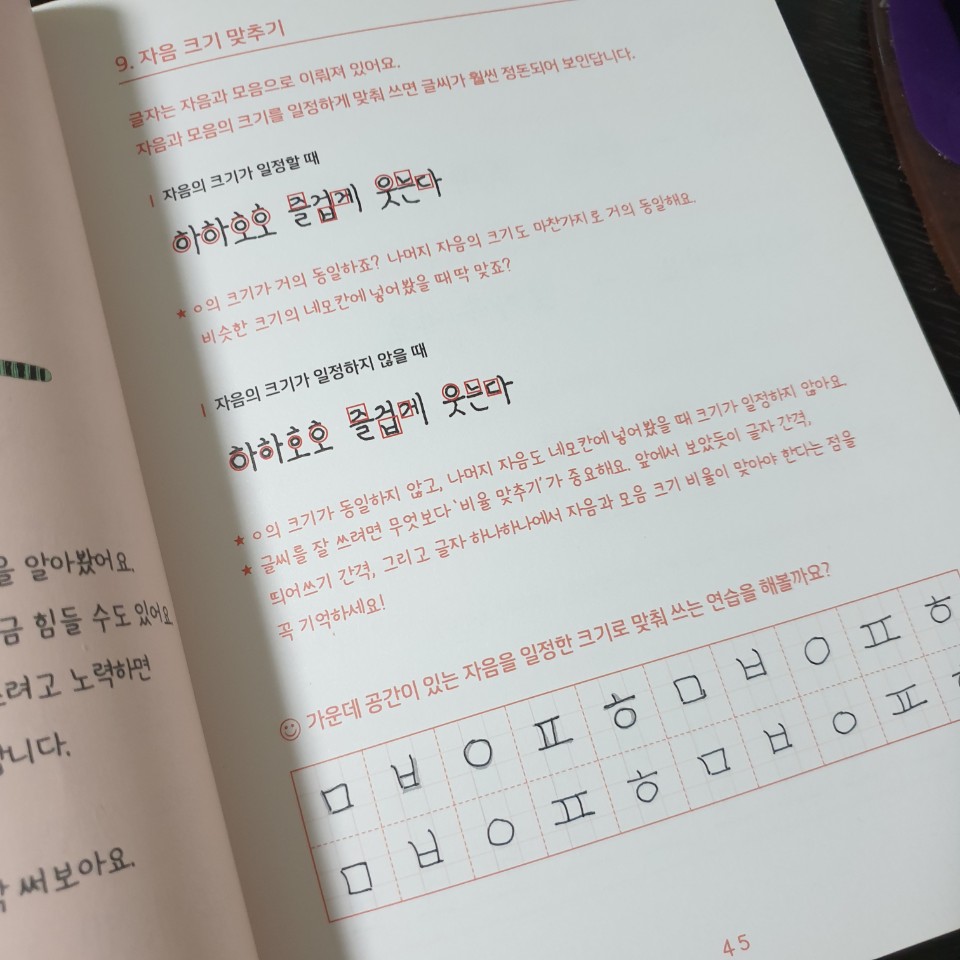 9. 자음 크기 맞추기
글자는 자음과 모음으로 이뤄져 있어요.
자음과 모음의 크기를 일정하게 맞춰 쓰면 글씨가 훨씬 정돈되어 보인답니다.
| 자음의 크기가 일정할 때
하하호호 즐겁게 웃는다
★ ㅇ의 크기가 거의 동일하죠? 나머지 자음의 크기도 마찬가지로 거의 동일해요.
비슷한 크기의 네모칸에 넣어봤을 때 딱 맞죠?
| 자음의 크기가 일정하지 않을 때
하하호호 즐겁게 웃는다
★ ㅇ의 크기가 동일하지 않고, 나머지 자음도 네모칸에 넣어봤을 때 크기가 일정하지 않아요.
★ 글씨를 잘 쓰려면 무엇보다 '비율 맞추기'가 중요해요. 앞에서 보았듯이 글자 간격,
띄어쓰기 간격, 그리고 글자 하나하나에서 자음과 모음 크기 비율이 맞아야 한다는 점을
꼭 기억하세요!
가운데 공간이 있는 자음을 일정한 크기로 맞춰 쓰는 연습을 해볼까요?
ㅁ ㅂ ㅇ ㅍ ㅎ ㅁ ㅂ ㅇ ㅍ ㅎ
ㅁ ㅂ ㅇ ㅍ ㅎ ㅁ ㅂ ㅇ ㅍ
45
을 알아봤어요.
금 힘들 수도 있어요
려고 노력하면
니다.
써보아요.